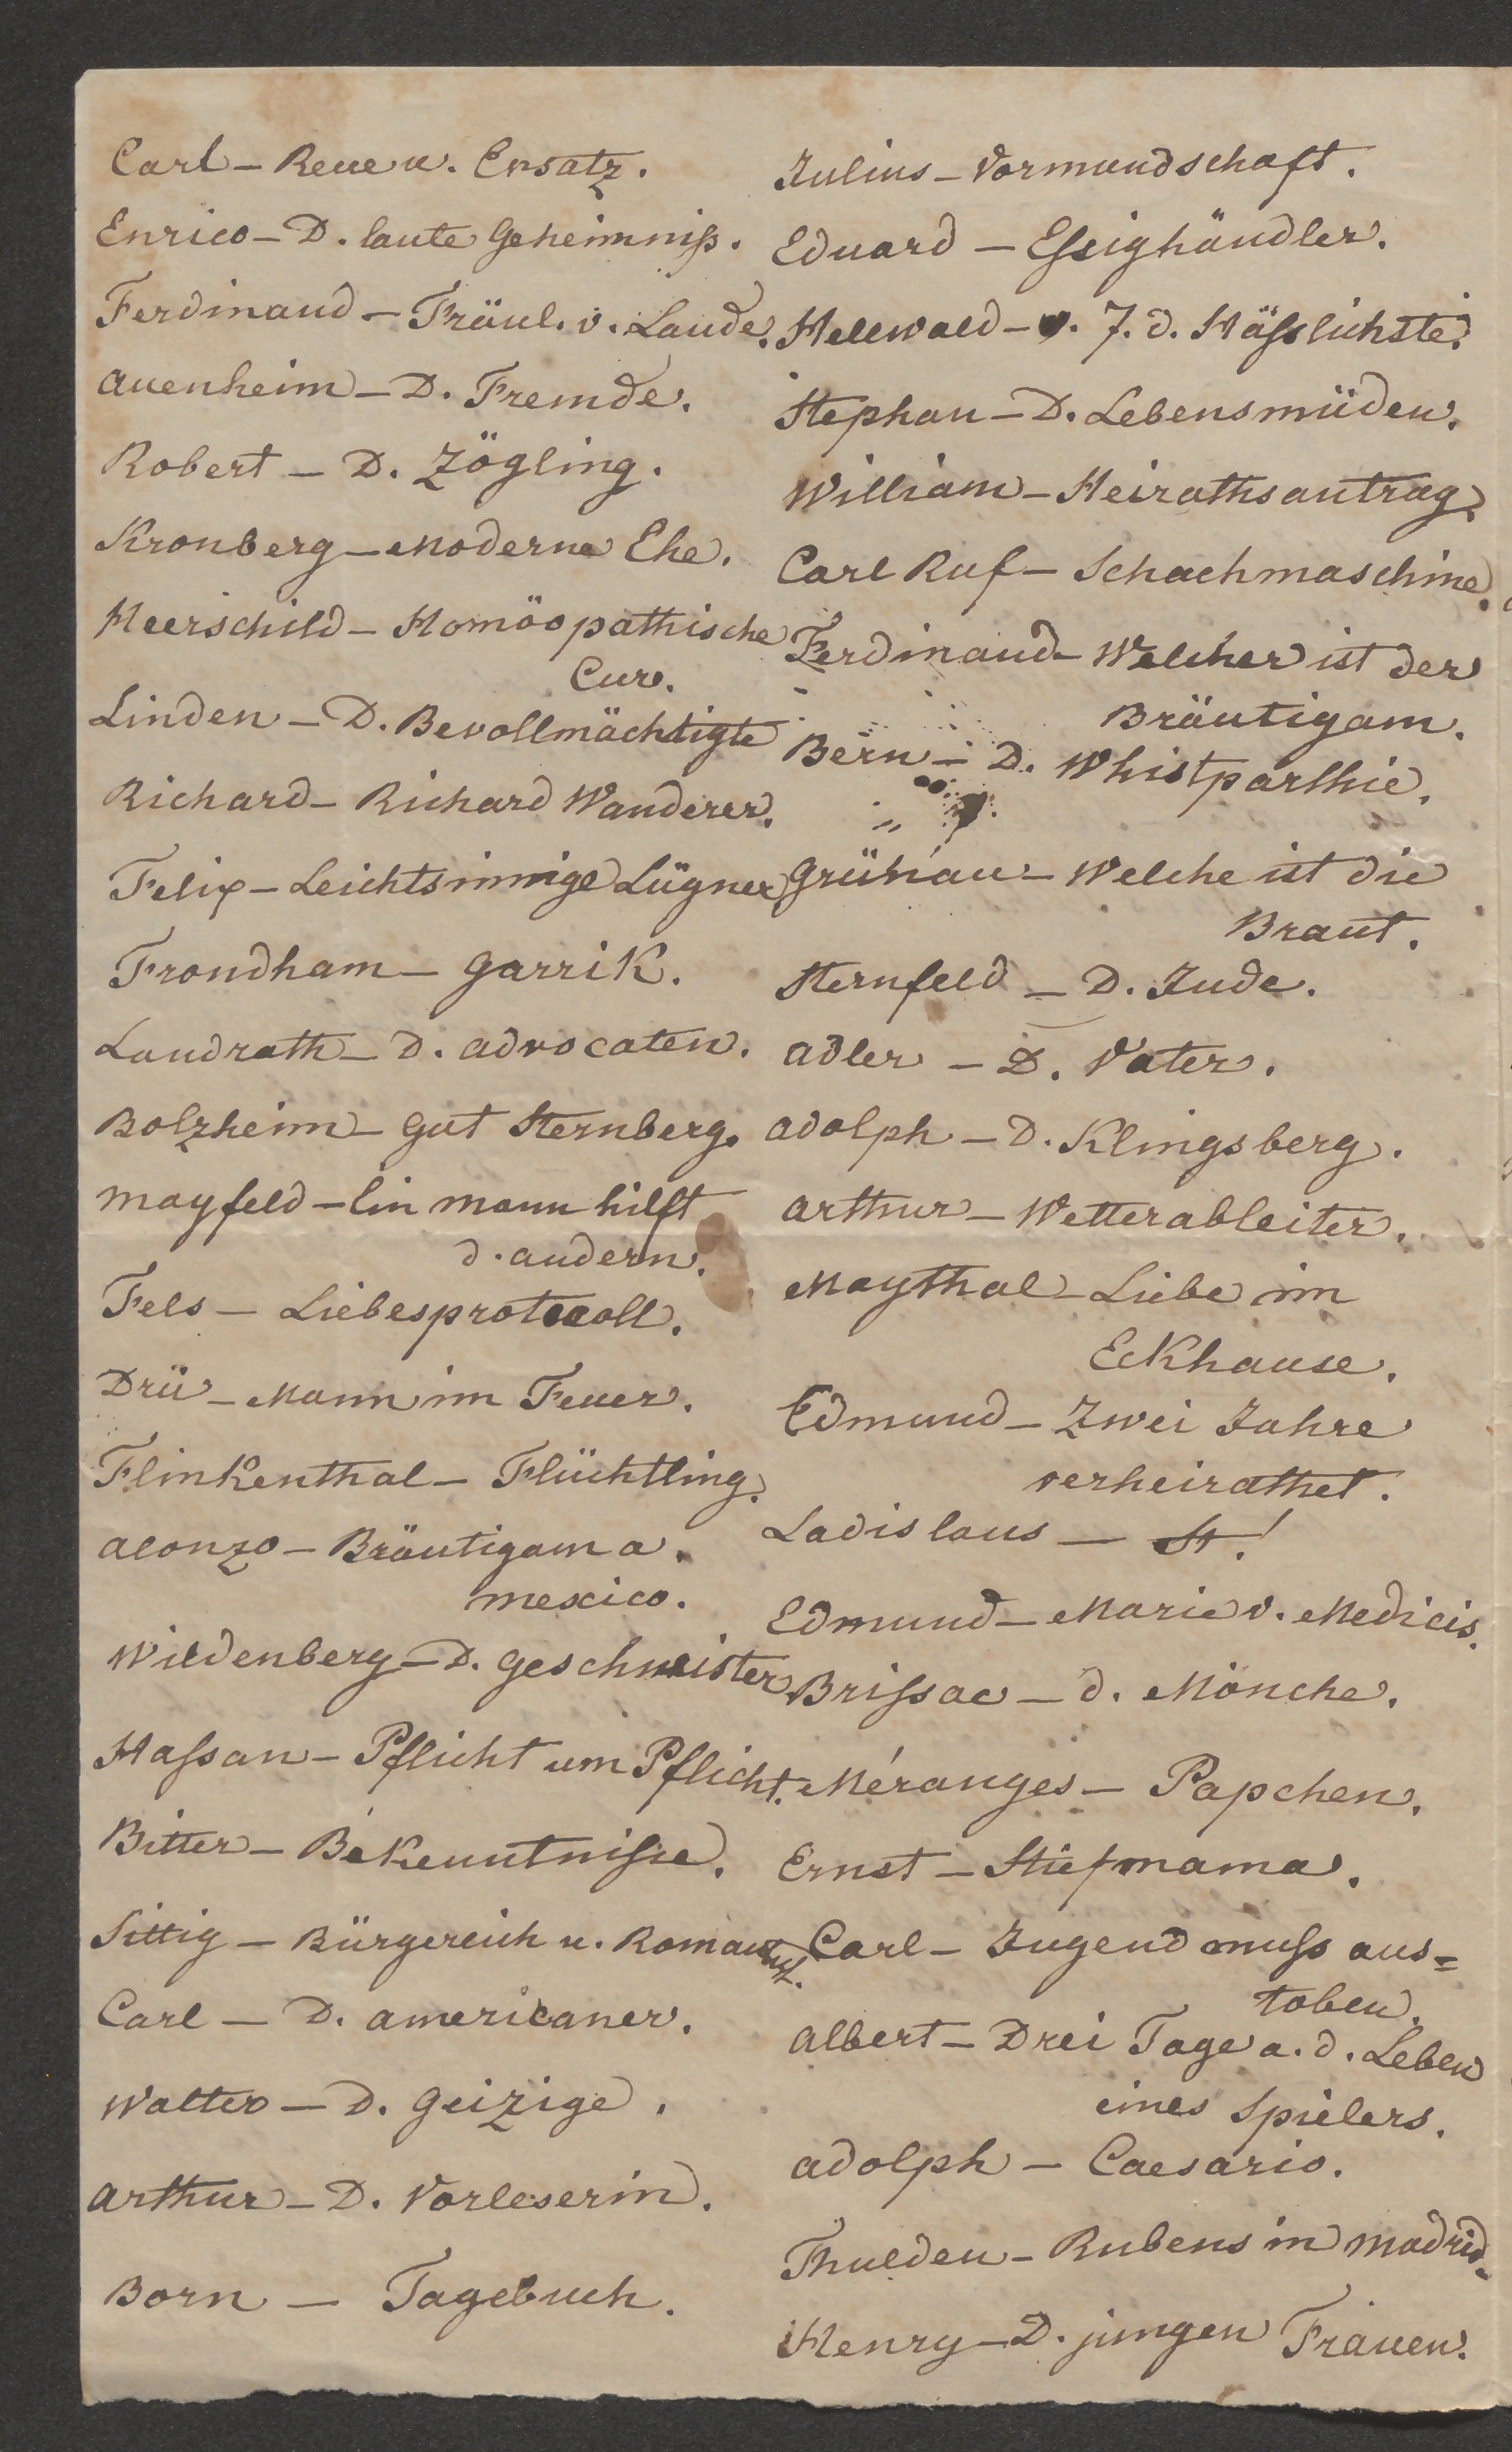 Carl – Reue u. Ersatz.
Enrico – D. laute Geheimniß.
Ferdinand – Fräul. v. Lande.
Auenheim – D. Fremde.
Robert – D. Zögling.
Kronberg – Moderne Ehe.
Heerschild – Homöopathische
Cur.
Linden – D. Bevollmächtigte
Richard – Richard Wanderer.
Felix – Leichtsinnige Lügner
Frondham – Garrik.
Landrath – D. Advocaten.
Bolzheim – Gut Sternberg.
Mayfeld – Ein Mann hilft
d. andern.
Fels – Liebesprotocoll.
Drü – Mann im Feuer.
Flinkenthal – Flüchtling.
Alonzo – Bräutigam a.
Mexico.
Wildenberg – D. Geschwister
Haßan – Pflicht um Pflicht.
Bitter – Bekenntniße.
Sittig – Bürgerlich u. Romantisch.
Carl – D. Americaner.
Walter – D. Geizige.
Arthur – D. Vorleserin.
Born – Tagebuch.
Julius – Vormundschaft.
Eduard – Eßighändler.
Hellwald – v. 7. d. Häßlichste.
Stephan – D. Lebensmüden.
William – Heirathsantrag.
Carl Ruf – Schachmaschine.
Ferdinand – Welcher ist der
Bräutigam.
Bern – D. Whistparthie.
Grünau – Welche ist die
Braut.
Sternfeld – D. Jude.
Adler – D. Vater.
Adolph – D. Klingsberg.
Arthur – Wetterableiter.
Maythal – Liebe im
Eckhause.
Edmund – Zwei Jahre
verheirathet.
Ladislaus – St!
Edmund – Marie v. Medicis.
Brißac – d. Mönche.
Méranges – Papchen.
Ernst – Stiefmama.
Carl – Jugend muß aus=
toben.
Albert – Drei Tage a. d. Leben
eines Spielers.
Adolph – Caesario.
Thulden – Rubens in Madrid.
Henry – D. jungen Frauen.